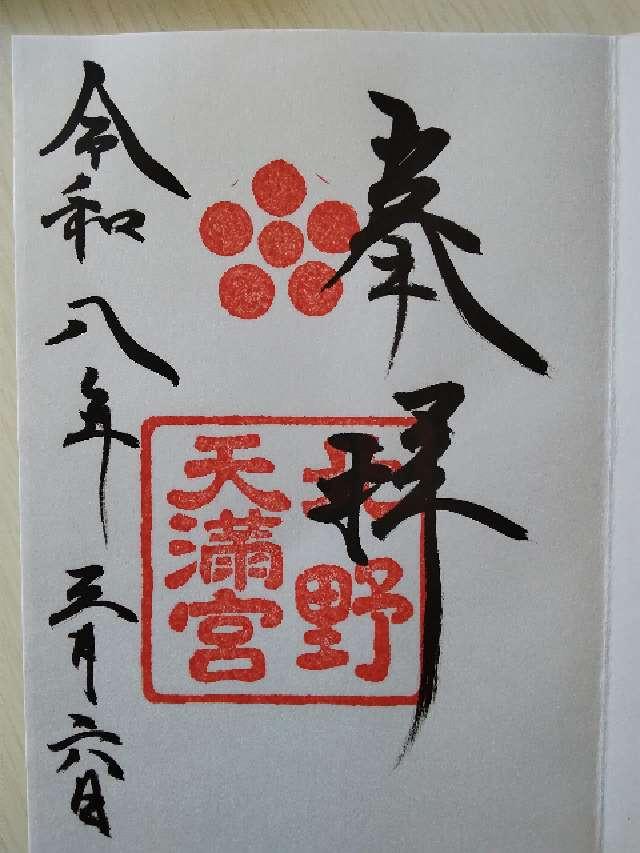 奉拝
北野
天満宮
令和八年三月六日